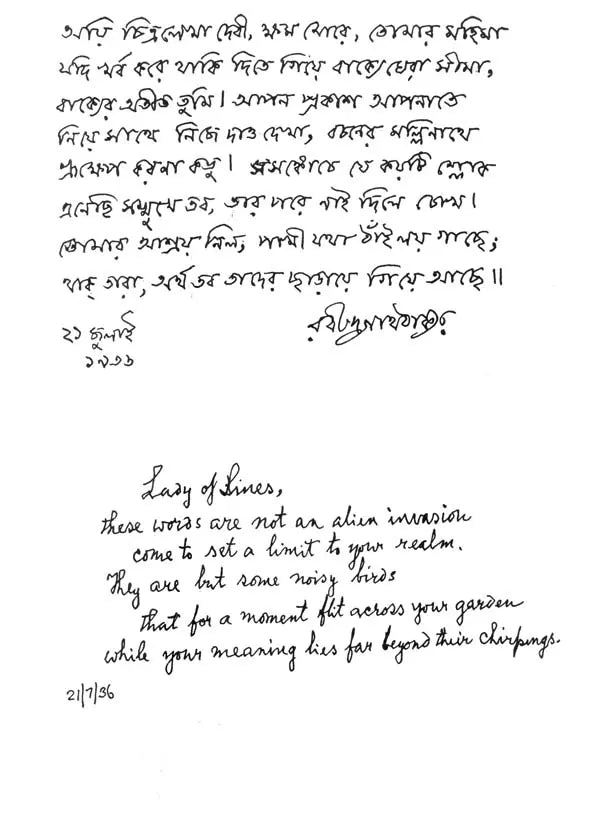 অয়ি চিত্রলেখা দেবী, ক্ষম মোরে, তোমার মহিমা
যদি খর্ব করে থাকি দিতে গিয়ে বাক্যে ঘেরা সীমা,
বাক্যের অতীত তুমি। আপন প্রকাশ আপনাতে
নিয়ে সাথে নিজে দাও দেখা, বচনের মল্লিনাথে
ভ্রূক্ষেপ করনা কভু। সসঙ্কোচে যে কয়টি শ্লোক
এনেছি সম্মুখে তব, তার পরে নাই দিলে চোখ।
তোমার আশ্রয় নিল, পাখী যথা ঠাঁই লয় গাছে;
থাক্ তারা, অর্থ তব তাদের ছাড়ায়ে গিয়ে আছে॥
২১ জুলাই
রবীন্দ্রনাথ ঠাকুর
১৯৩৬
Lady of Lines,
these words are not an alien invasion
come to set a limit to your realm.
They are but some noisy birds
that for a moment flit across your garden
while your meaning lies far beyond their chirpings.
21/7/36